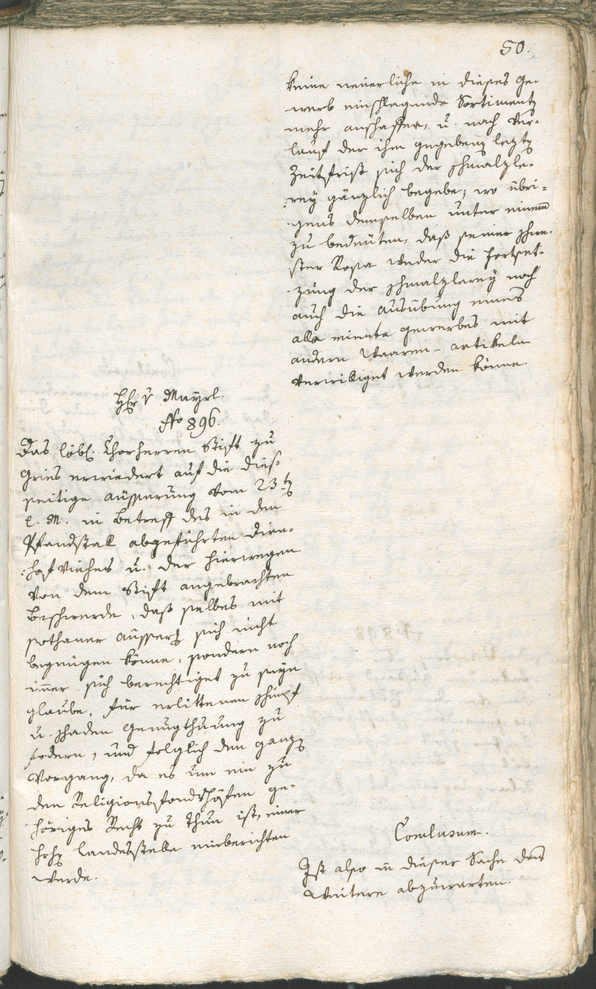 50.
keine neuerliche in dieses Ge-
werb einschlagende Sortiment
mehr anschaffen, u. nach Ver-
lauf der ihm gegebenen letzten
Zeitfrist sich der Schmalzle-
rey gänzlich begebe; wo übri-
gens demselben unter einem
zu bedeuten, daß seiner Schwe-
ster Rosa weder die Fortset-
zung der Schmalzlerey noch
auch die Ausübung eines
alla minuta Gewerbes mit
andern Waaren-artikeln
verwilliget werden könne.
Hr v Mayrl.
No 896.
Das löbl. Chorherren Stift zu
Gries erwiedert auf die dies-
seitige äusserung vom 23ten
l. M. in Betreff des in den
Pfandstall abgeführten Dien-
stviehes u. der hierwegen
von dem Stift angebrachten
Beschwerde, daß selbes mit
sothaner äusserung sich nicht
begnügen könne, sondern noch
imer sich berechtiget zu seyn
glaube, für erlittenen Schimpf
u. Schaden Genugthuung zu
fodern, und folglich den ganzen
Vorgang, da es um ein zu
den Religionsfonds gehö-
höriges Recht zu thun ist, einer
hohen Landesstelle einberichten
werde.
Conclusum.
Ist also in dieser Sache das
Weitere abzuwarten.